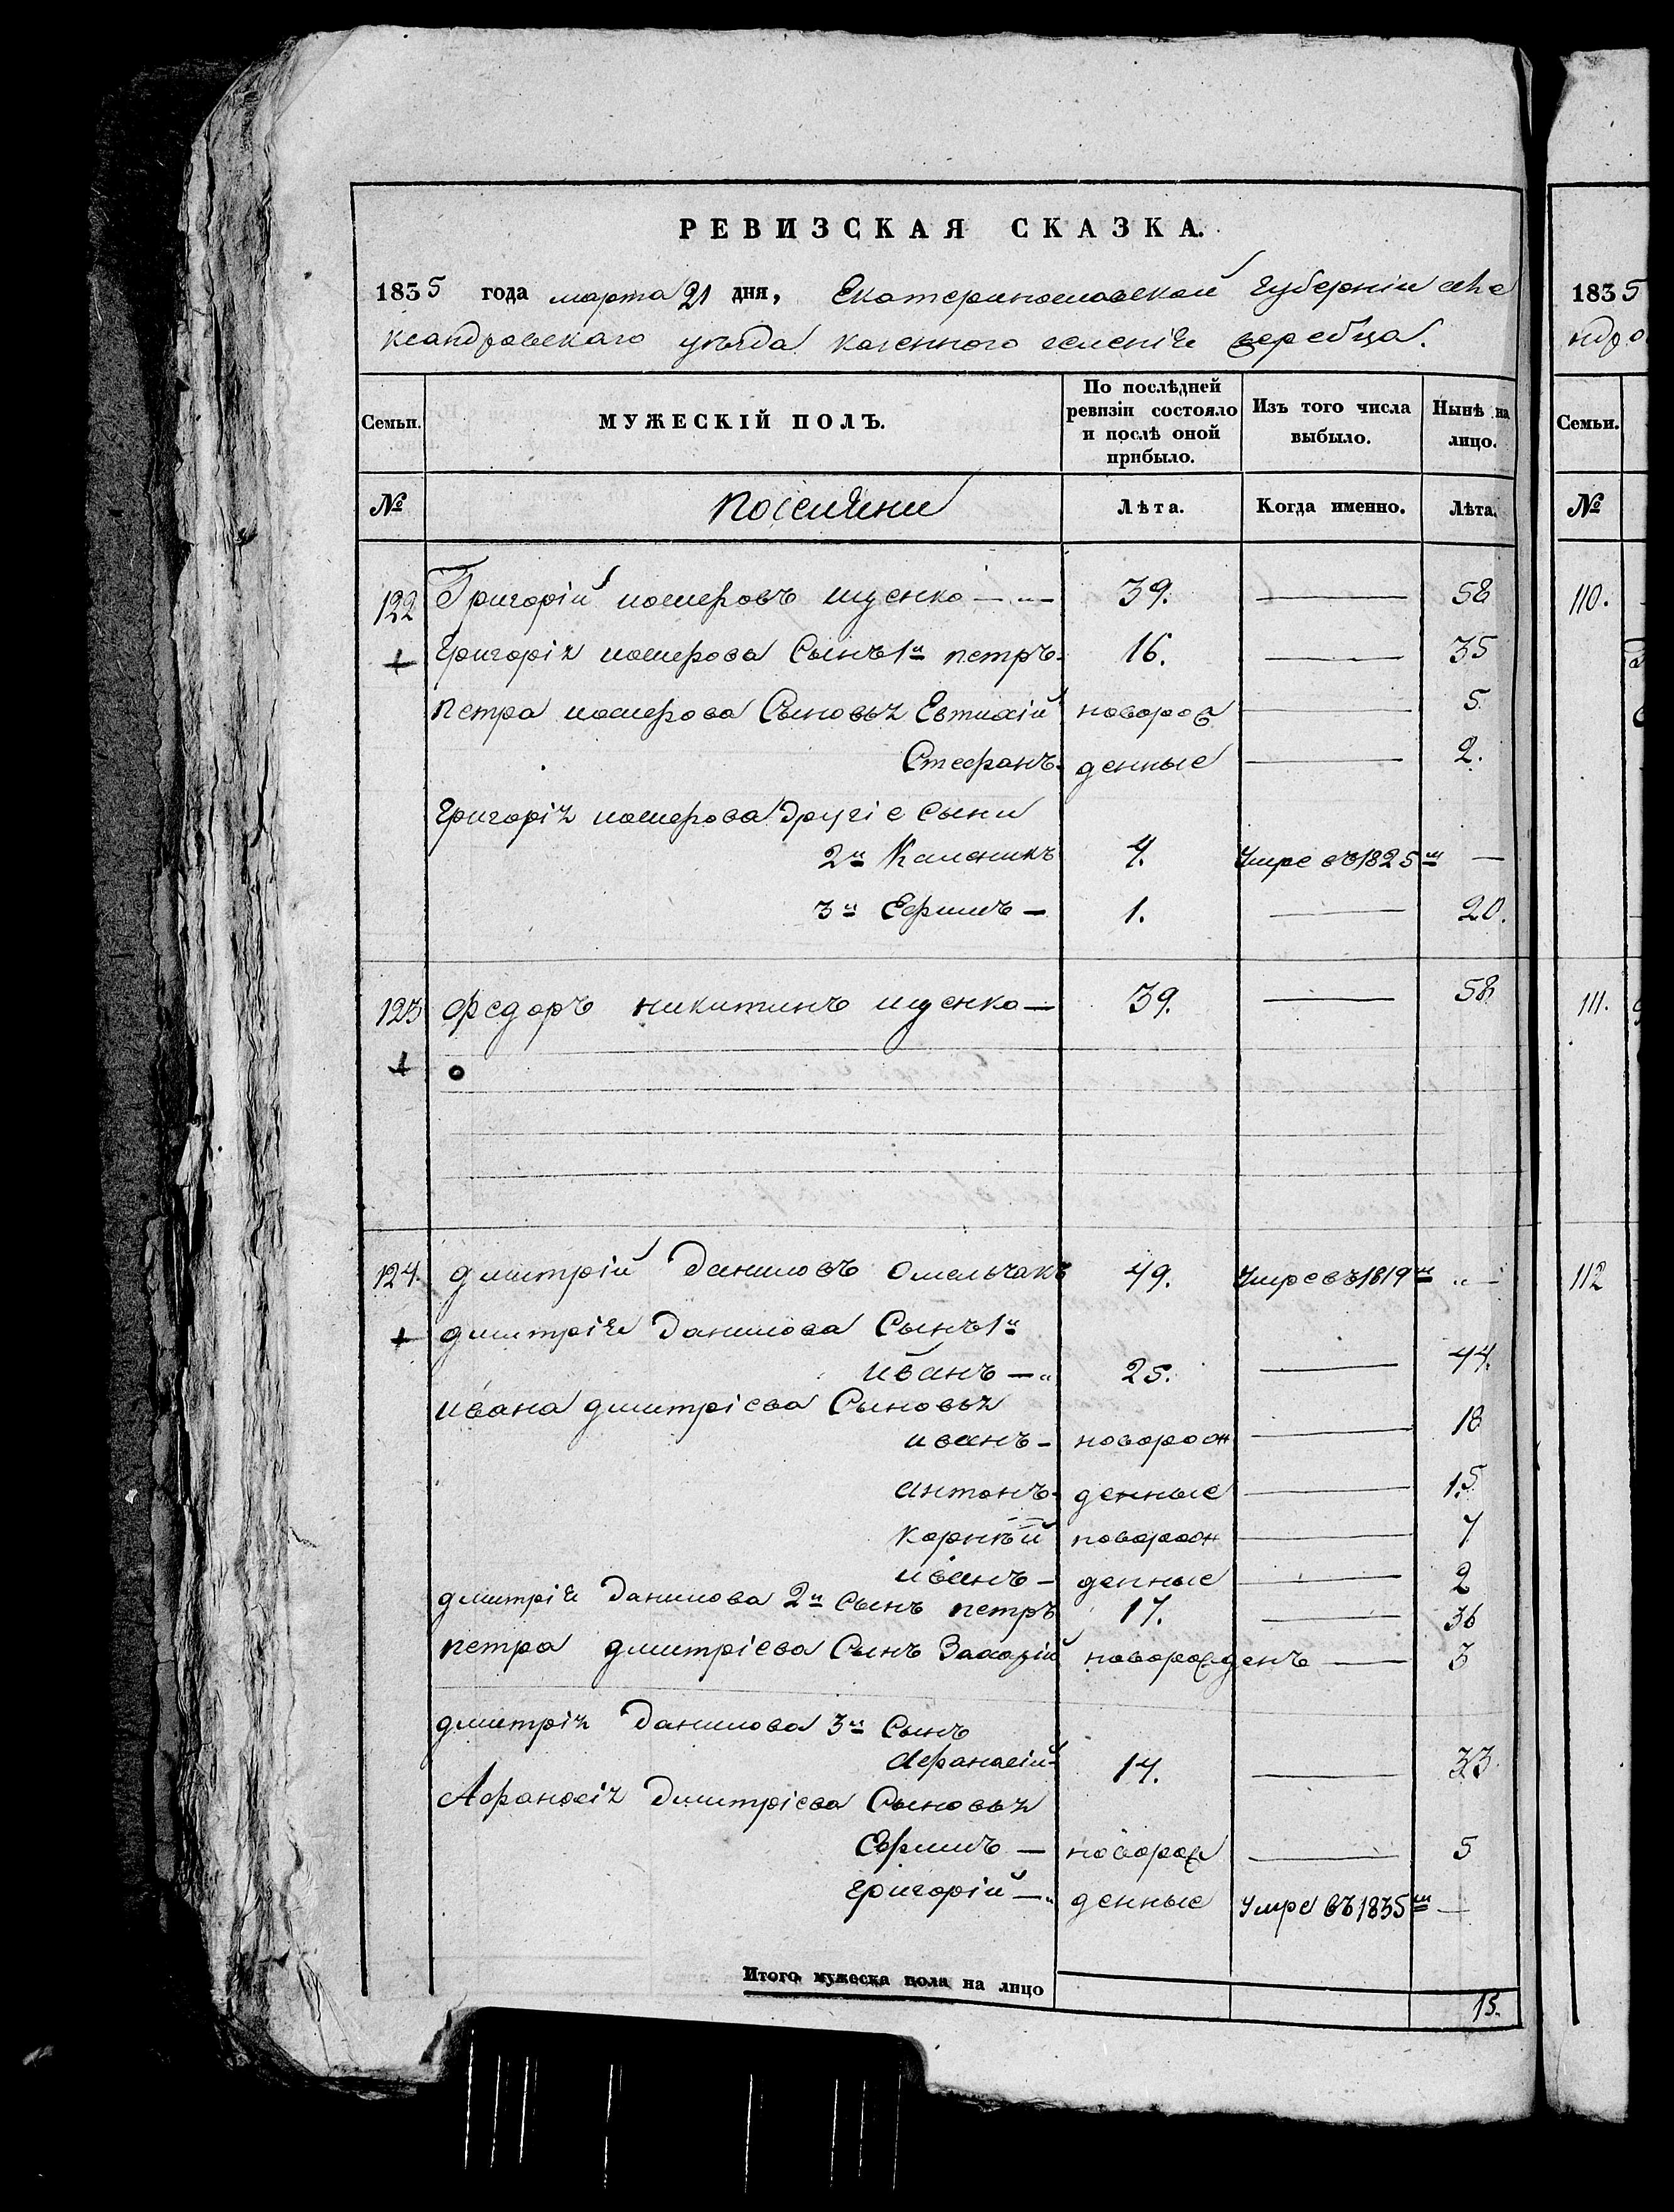 РЕВИЗСКАЯ СКАЗКА.
1835 года марта 21 дня, Екатеринославской губерніи Але
ксандровскаго уѣзда казенного селенія Жеребца.
Семьи. МУЖЕСКІЙ ПОЛЪ. По послѣдней ревизіи состояло и послѣ оной прибыло. Изъ того числа выбыло. Нынѣ на лицо.
№ поселяни Лѣта. Когда именно. Лѣта.
122 Григорій ищенко 39. — 58
Григорія Сынъ 1й петръ 16. — 35
петра Сыновья Евтихій новорож — 5
Стефанъ денные — 2.
Григорія другіе сыни
2й Каленикъ 4. Умре въ 1825м —
3й Ефимъ — 1. — 20.
123 Федоръ никитинъ ищенко — 39. — 58
124. дмитрій даниловъ Омельчакъ 49. Умре въ 1819м —
дмитрія данилова Сынъ 1й
иванъ — 25. — 44.
ивана дмитріева Сыновья
иванъ — новорож — 18
антонъ — денные — 15
корнѣй новорож — 7
иванъ — денные — 2
дмитрія данилова 2й Сынъ петръ 17. — 36
петра дмитріева Сынъ Захарій новорожденъ — 3
дмитрія данилова 3й Сынъ
Афанасій 14. — 33
Афанасія дмитріева Сыновья
Ефимъ — новорож — 5
григорій — денные Умре въ 1835м —
Итого мужеска пола на лицо 15.
1835
ндро
Семьи.
№
110.
111.
112